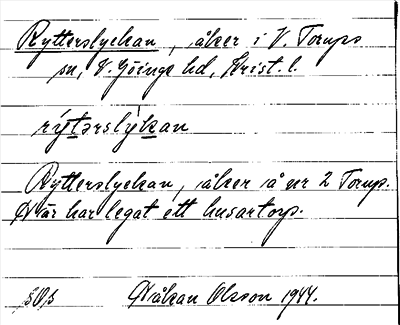 Rytterslyckan, åker i V. Torups
sn, V. Göinge hd, Krist. l.
rýtərslỳkan
Rytterslyckan, åker å nr 2 Torup.
Där har legat ett husartorp.
Håkan Olsson 1944.